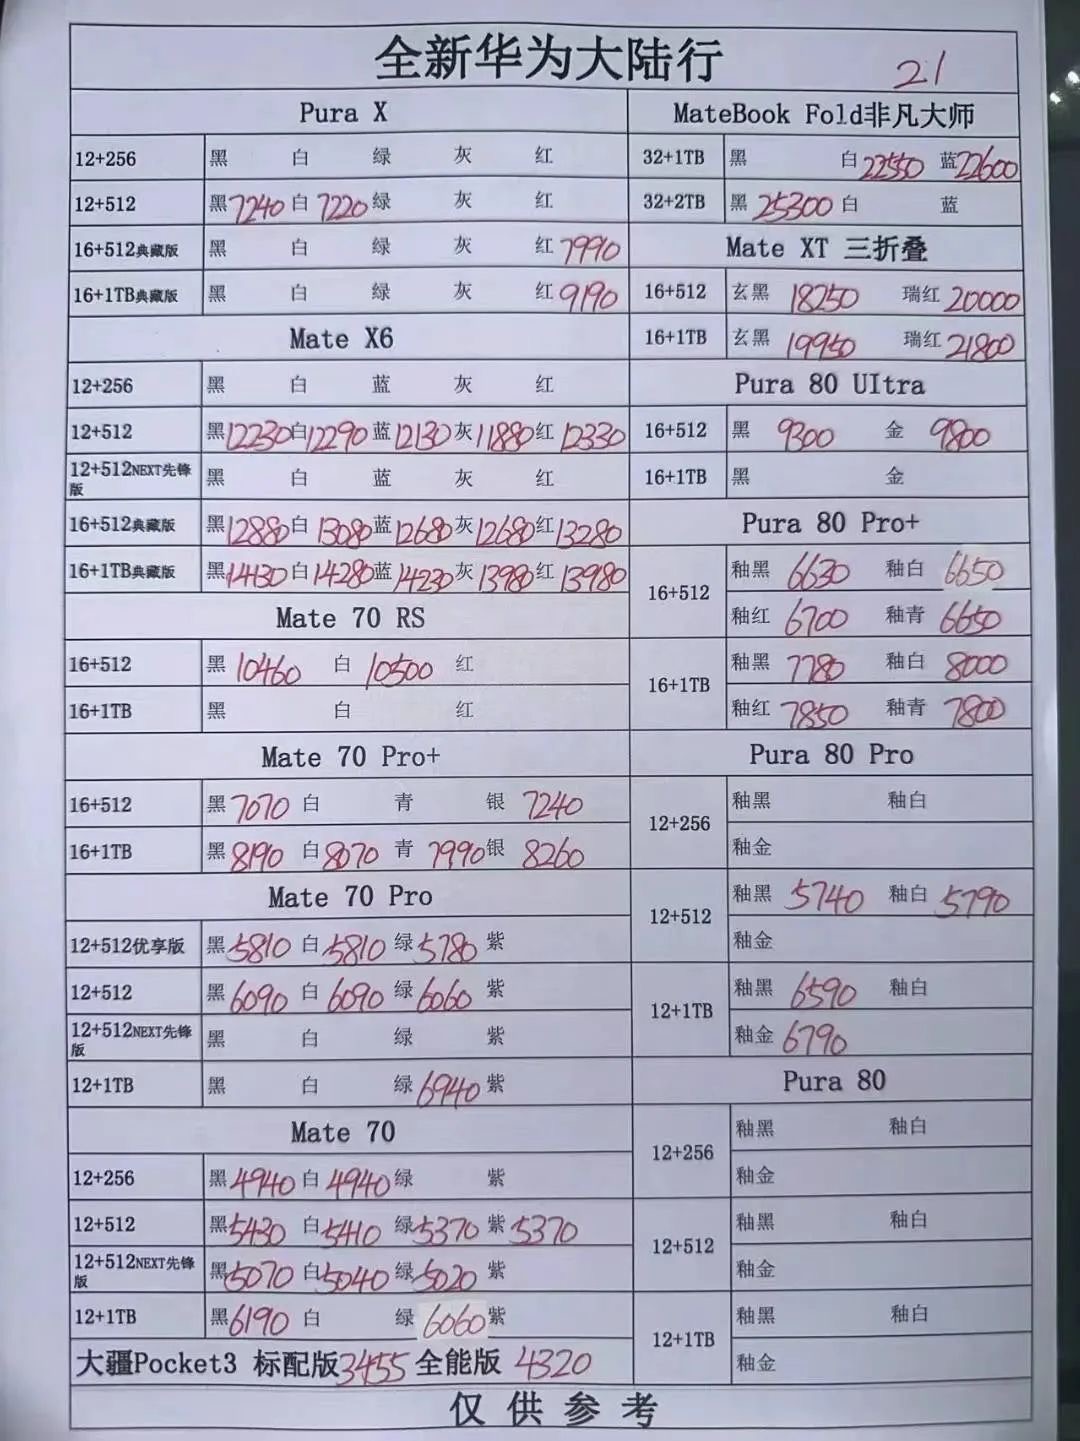 全新华为大陆行 21
Pura X
12+256 黑 白 绿 灰 红
12+512 黑7240 白7220 绿 灰 红
16+512典藏版 黑 白 绿 灰 红7990
16+1TB典藏版 黑 白 绿 灰 红9190
Mate X6
12+256 黑 白 蓝 灰 红
12+512 黑12230 白12290 蓝12130 灰11880 红12330
12+512NEXT先锋版 黑 白 蓝 灰 红
16+512典藏版 黑12880 白13080 蓝12680 灰12680 红13280
16+1TB典藏版 黑14130 白14280 蓝14230 灰13980 红13980
Mate 70 RS
16+512 黑10460 白10500 红
16+1TB 黑 白 红
Mate 70 Pro+
16+512 黑7070 白 青 银7240
16+1TB 黑8190 白8070 青7990 银8260
Mate 70 Pro
12+512优享版 黑5810 白5810 绿5780 紫
12+512 黑6090 白6090 绿6060 紫
12+512NEXT先锋版 黑 白 绿 紫
12+1TB 黑 白 绿6940 紫
Mate 70
12+256 黑4940 白4940 绿 紫
12+512 黑5430 白5410 绿5370 紫5370
12+512NEXT先锋版 黑5070 白5040 绿5020 紫
12+1TB 黑6190 白 绿6060 紫
大疆Pocket3 标配版3455 全能版 4320
MateBook Fold非凡大师
32+1TB 黑 白22550 蓝22600
32+2TB 黑25300 白 蓝
Mate XT 三折叠
16+512 玄黑 18250 瑞红20000
16+1TB 玄黑 19950 瑞红21800
Pura 80 UItra
16+512 黑 9300 金 9800
16+1TB 黑 金
Pura 80 Pro+
16+512 釉黑 6630 釉白 6650
釉红 6700 釉青 6650
16+1TB 釉黑 7780 釉白 8000
釉红 7850 釉青 7800
Pura 80 Pro
12+256 釉黑 釉白
釉金
12+512 釉黑 5740 釉白 5790
釉金
12+1TB 釉黑 6590 釉白
釉金 6790
Pura 80
12+256 釉黑 釉白
釉金
12+512 釉黑 釉白
釉金
12+1TB 釉黑 釉白
釉金
仅供参考